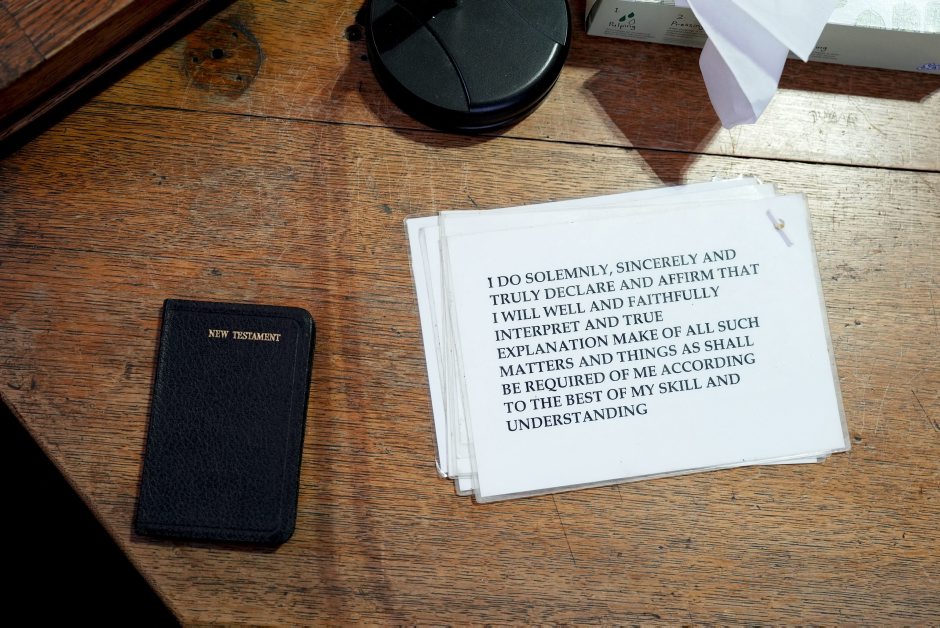 1
Pulping
2
Pressing
NEW TESTAMENT
I DO SOLEMNLY, SINCERELY AND
TRULY DECLARE AND AFFIRM THAT
I WILL WELL AND FAITHFULLY
INTERPRET AND TRUE
EXPLANATION MAKE OF ALL SUCH
MATTERS AND THINGS AS SHALL
BE REQUIRED OF ME ACCORDING
TO THE BEST OF MY SKILL AND
UNDERSTANDING